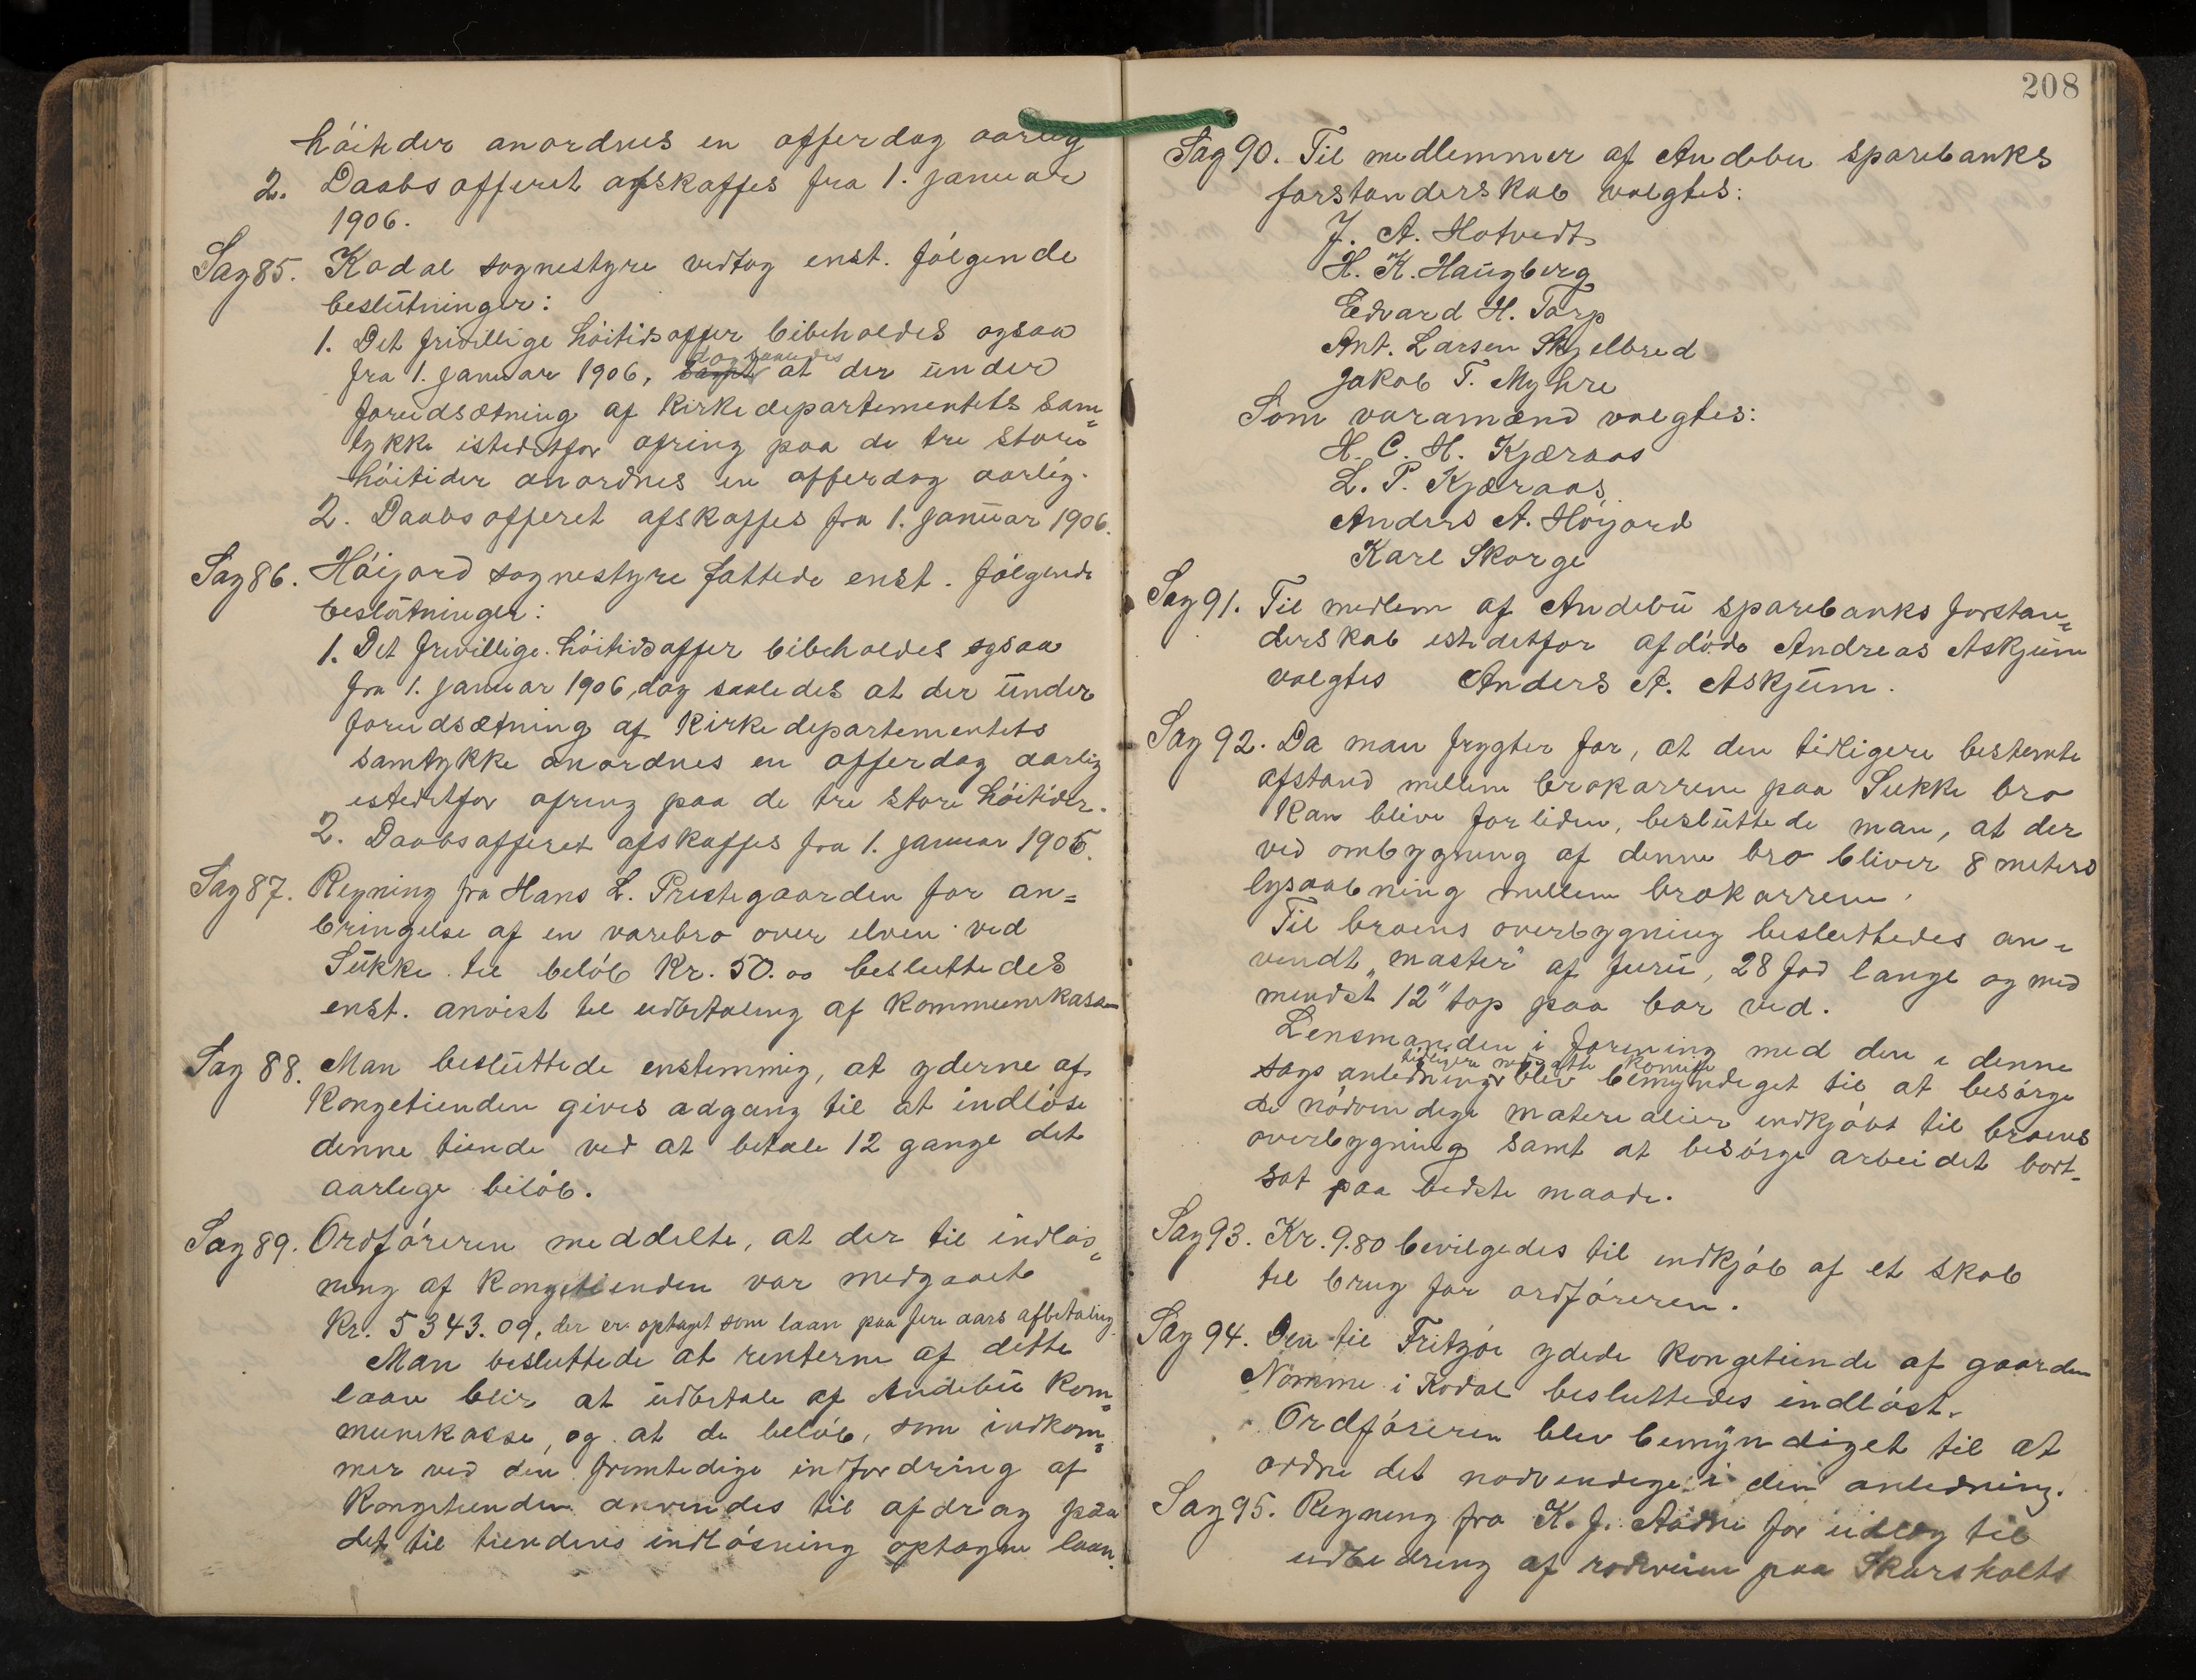 höitider anordnes en offerdag aarlig
2. Daabsofferet afskaffes fra 1. januar
1906.
Sag 85. Kodal sognestyre vedtog enst. følgende
beslutninger:
1. Det frivillige høitidsoffer bibeholdes ogsaa
dog saaledes
fra 1. januar 1906, at der under
forudsætning af Kirkedepartementets sam=
tykke istedetfor ofring paa de tre store
høitider anordnes en offerdag aarlig.
2. Daabsofferet afskaffes fra 1. januar 1906.
Sag 86. Høijord sognestyre fattede enst. følgende
beslutninger:
1. Det frivillige høitidsoffer bibeholdes ogsaa
fra 1. januar 1906, dog saaledes at der under
forudsætning af Kirkedepartementets
samtykke anordnes en offerdag aarlig
istedetfor ofring paa de tre store høitider.
2. Daabsofferet afskaffes fra 1. januar 1906.
Sag 87. Regning fra Hans L. Prestegaarden for an=
bringelse af en varebro over elven ved
Sukke til beløb Kr. 50.00 besluttedes
enst. anvist til udbetaling af Kommunekassen
Sag 88. Man besluttede enstemmig, at yderne af
Kongetienden gives adgang til at indløse
denne tiende ved at betale 12 gange det
aarlige beløb.
Sag 89. Ordføreren meddelte, at der til indløs=
ning af Kongetienden var medgaaet
Kr. 5343.09, der er optaget som laan paa fire aars afbetaling.
Man besluttede at renterne af dette
laan blir at udbetale af Andebu Kom=
munekasse, og at de beløb, som indkom=
mer ved den fremtidige indfordring af
Kongetienden anvendes til afdrag paa
det til tiendens indløsning optagne laan.
208
Sag 90. Til medlemmer af Andebu sparebanks
forstanderskab valgtes:
J. A. Hotvedt
H. K. Haugberg
Edvard H. Torp
Ant. Larsen Skjelbred
Jakob T. Myhre
Som varamænd valgtes:
H. C. H. Kjæraas
L. P. Kjæraas
Anders A. Høijord
Karl Skorge
Sag 91. Til medlem af Andebu sparebanks forstan=
derskab istedetfor afdøde Andreas Askjum
valgtes Anders A. Askjum.
Sag 92. Da man frygter for, at den tidligere bestemte
afstand mellem brokarrene paa Sukke bro
kan blive for liden, besluttede man, at der
ved ombygning af denne bro bliver 8 meters
lysaabning mellem brokarrene.
Til broens overbygning besluttedes an=
vendt "master" af furu, 28 fod lange og med
mindst 12" top paa bar ved.
Lensmanden i forening med den i denne
tidligere nedsatte komite
sags anledning blev bemyndiget til at besørge
de nødvendige materialier indkjøbt til broens
overbygning samt at besørge arbeidet bort=
sat paa bedste maade.
Sag 93. Kr. 9.80 bevilgedes til indkjøb af et skab
til brug for ordføreren.
Sag 94. Den til Fritzøe ydede kongetiende af gaarden
Nomme i Kodal besluttedes indløst.
Ordføreren blev bemyndiget til at
ordne det nødvendige i den anledning.
Sag 95. Regning fra K. J. Aadne for udlæg til
udbedring af rodeveien paa Skarsholts